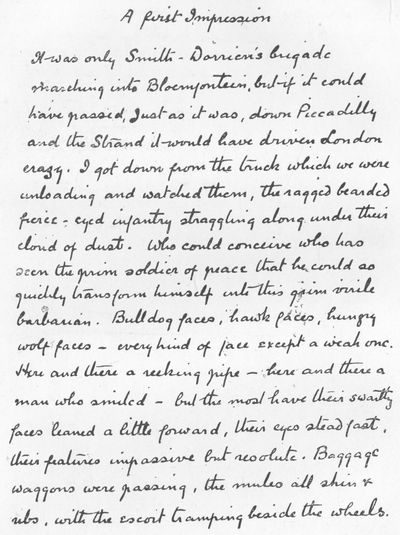 A first Impression
It was only Smith-Dorrien's brigade
marching into Bloemfontein, but if it could
have passed, Just as it was, down Piccadilly
and the Strand it would have driven London
crazy. I got down from the truck which we were
unloading and watched them, the ragged bearded
fierce-eyed infantry straggling along under their
cloud of dust. Who could conceive who has
seen the prim soldier of peace that he could so
quickly transform himself into this grim virile
barbarian. Bulldog faces, hawk faces, hungry
wolf faces - every kind of face except a weak one.
Here and there a reeking pipe - here and there a
man who smiled - but the most have their swarthy
faces leaned a little forward, their eyes steadfast,
their features impassive but resolute. Baggage
waggons were passing, the mules all skin &
ribs, with the escort tramping beside the wheels.